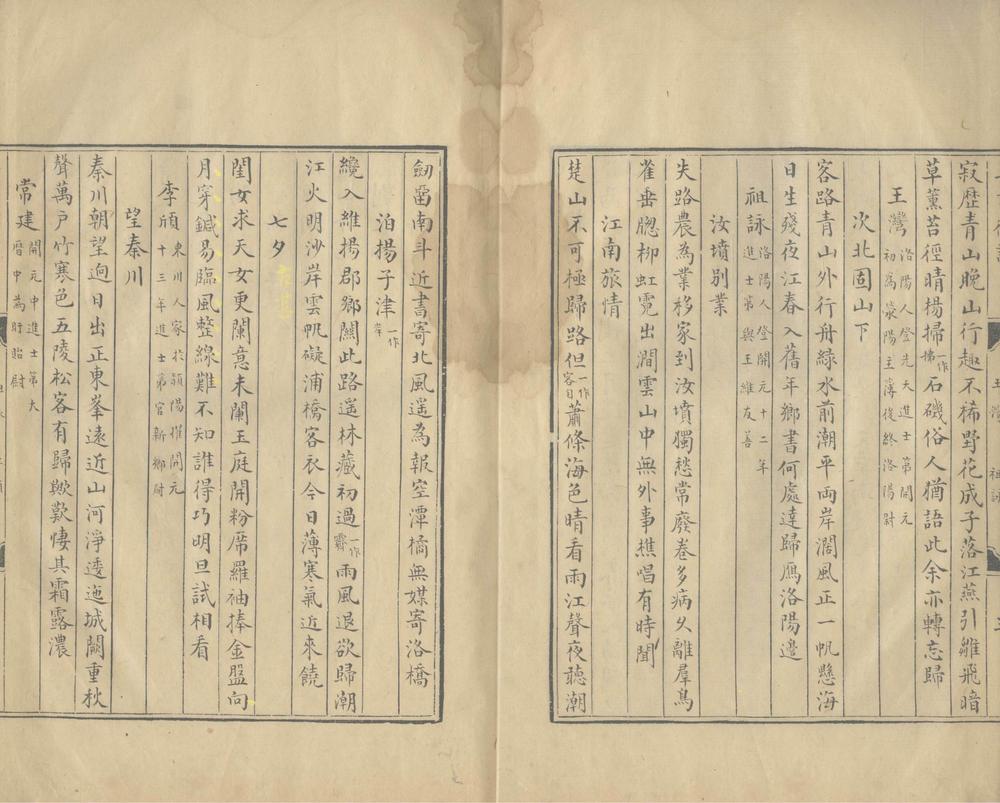 寂歷青山晚山行趣不稀野花成子落江燕引雛飛暗
草薰苔徑晴楊掃一作拂石磯俗人猶語此余亦轉忘歸
王灣洛陽人登先天進士第開元初為滎陽主薄後終洛陽尉
次北固山下
客路青山外行舟綠水前潮平兩岸濶風正一帆懸海
日生殘夜江春入舊年鄉書何處達歸鴈洛陽邊
祖詠洛陽人登開元十二年進士第與王維友善
汝墳別業
失路農為業移家到汝墳獨愁常廢卷多病久離羣鳥
雀垂牕柳虹霓出澗雲山中無外事樵唱有時聞
江南旅情
楚山不可極歸路但一作客日蕭條海色晴看雨江聲夜聽潮
劒留南斗近書寄北風遥為報空潭橘無媒寄洛橋
泊揚子津一作岸
纔入維揚郡鄉關此路遥林藏初過一作霽雨風退欲歸潮
江火明沙岸雲帆礙浦橋客衣今日薄寒氣近來饒
七夕
閨女求天女更闌意未闌玉庭開粉席羅袖捧金盤向
月穿鍼易臨風整線難不知誰得巧明旦試相看
李頎東川人家於潁陽擢開元十三年進士第官新鄉尉
望秦川
秦川朝望迥日出正東峯遠近山河淨逶迤城闕重秋
聲萬戸竹寒色五陵松客有歸歟歎悽其霜露濃
常建開元中進士第大曆中為盱眙尉